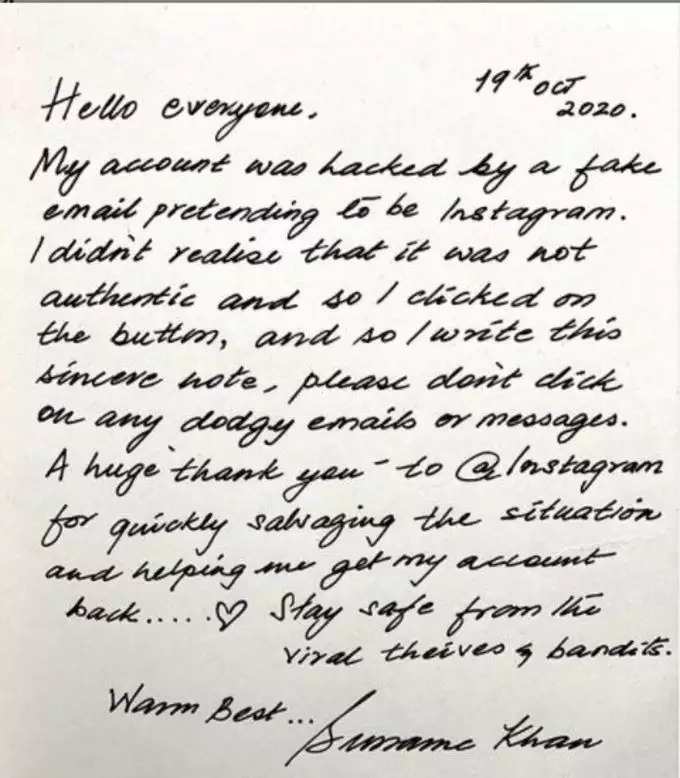 19th oct
2020.
Hello everyone.
My account was hacked by a fake
email pretending to be Instagram.
I didn't realise that it was not
authentic and so I clicked on
the button, and so I write this
sincere note, please don't click
on any dodgy emails or messages.
A huge "thank you" to @Instagram
for quickly salvaging the situation
and helping me get my account
back.....♡ Stay safe from the
viral theives & bandits.
Warm Best...
Sussanne Khan